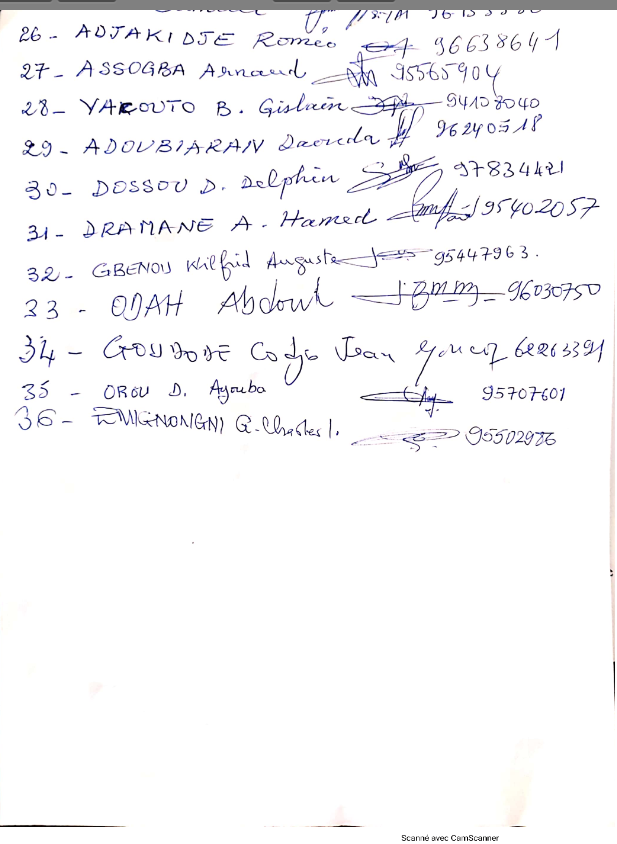 26 - ADJAKIDJE Roméo 96638641
27 - ASSOGBA Arnaud 95565904
28 - YAKOUTO B. Gislain 94108040
29 - ADOUBIARAN Daouda 96240518
30 - DOSSOU D. Delphin 97834421
31 - DRAMANE A. Hamed 95402057
32 - GBENOU Wilfrid Auguste 95447963.
33 - ODAH Abdoul 96030750
34 - Codjo Jean
35 - OROU D. Ayouba 95707601
36 - G. Charles I.
Scanné avec CamScanner